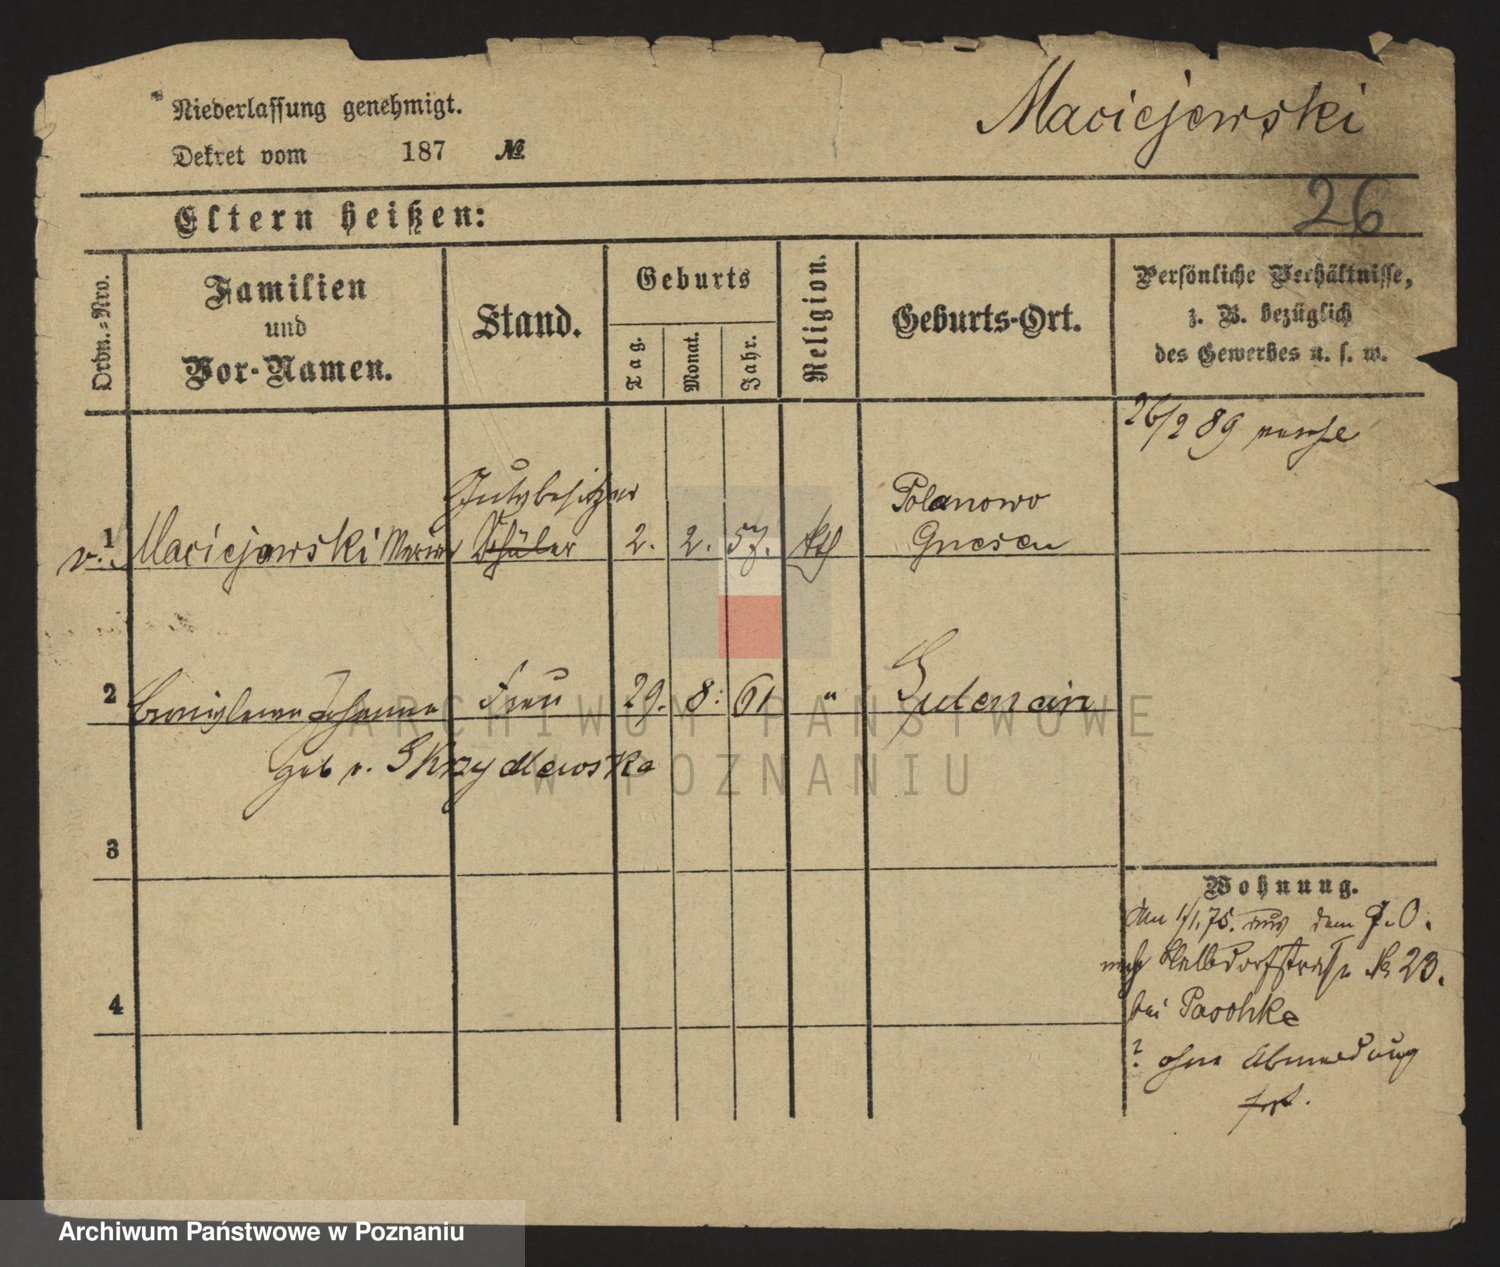 Niederlassung genehmigt.
Dekret vom 187 №
Maciejewski
26
Eltern heißen:
Ordn.=Nro.
Familien
und
Vor-Namen.
Stand.
Geburts
Tag.
Monat.
Jahr.
Religion.
Geburts-Ort.
Persönliche Verhältnisse,
z. B. bezüglich
des Gewerbes u. s. w.
26/2 89
Gutsbesitzer
1 v. Maciejewski Schüler 2. 2. 57. kth
Polanowo
Gnesen
2 Bronislawa Johanna Frau 29. 8. 61 "
geb v. Skrzydlewska
3
4
Wohnung.
Am 1/1. 75. aus dem
nach Halbdorfstraße № 23.
bei Paschke
? ohne Abmeldung
fort.
ARCHIWUM PAŃSTWOWE
W POZNANIU
Archiwum Państwowe w Poznaniu